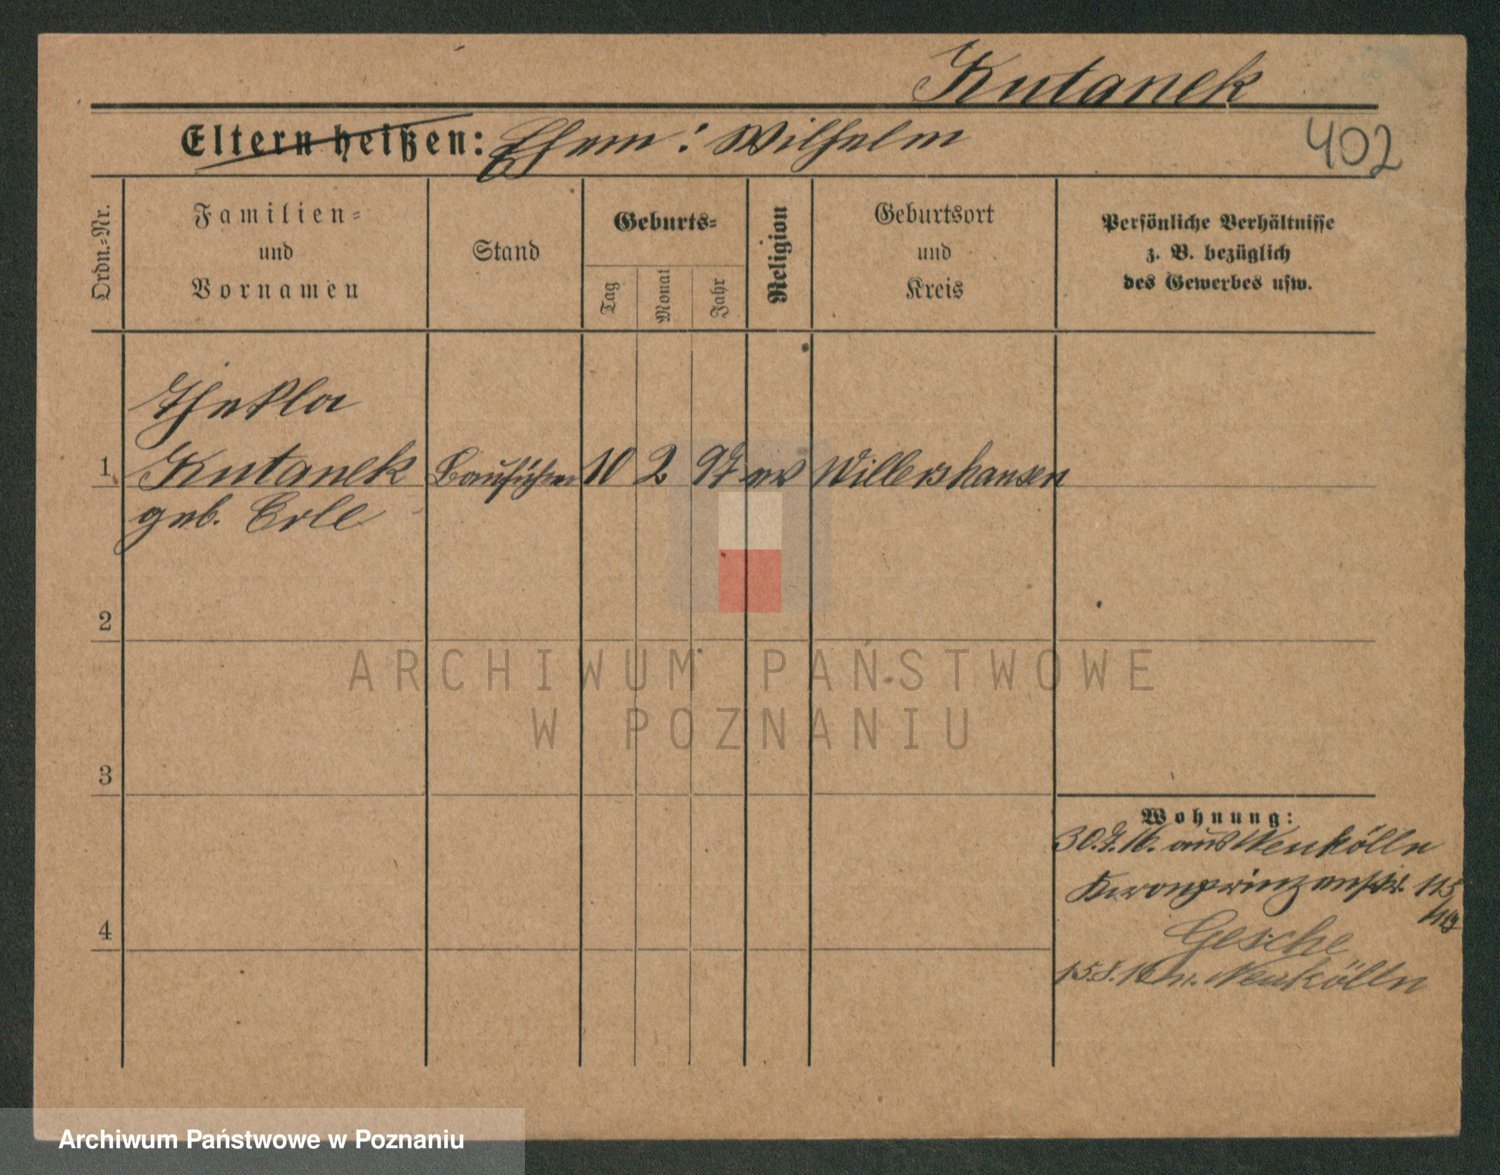 Kutanek
Eltern heißen: Ehem: Wilhelm
402
Ordn.-Nr.
Familien-
und
Vornamen
Stand
Geburts-
Tag
Monat
Jahr
Religion
Geburtsort
und
Kreis
Persönliche Verhältnisse
z. B. bezüglich
des Gewerbes usw.
Thekla
1 Kutanek Bauführer 10 2 ev Willershausen
geb. Erle
2
3
4
ARCHIWUM PAŃSTWOWE
W POZNANIU
Wohnung:
aus Neukölln
Kronprinzenstr. 115
Gesche
15.8.16 n. Neukölln
Archiwum Państwowe w Poznaniu